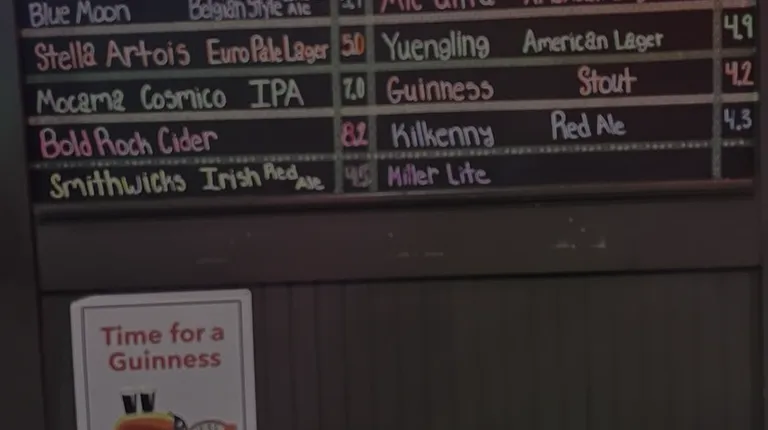 Blue Moon Belgian Style Ale
Stella Artois Euro Pale Lager 5.0
Mocama Cosmico IPA 7.0
Bold Rock Cider 8.2
Smithwicks Irish Red Ale 4.5
Mic Ultra
4.9
Yuengling American Lager
Guinness Stout 4.2
Kilkenny Red Ale 4.3
Miller Lite
Time for a
Guinness